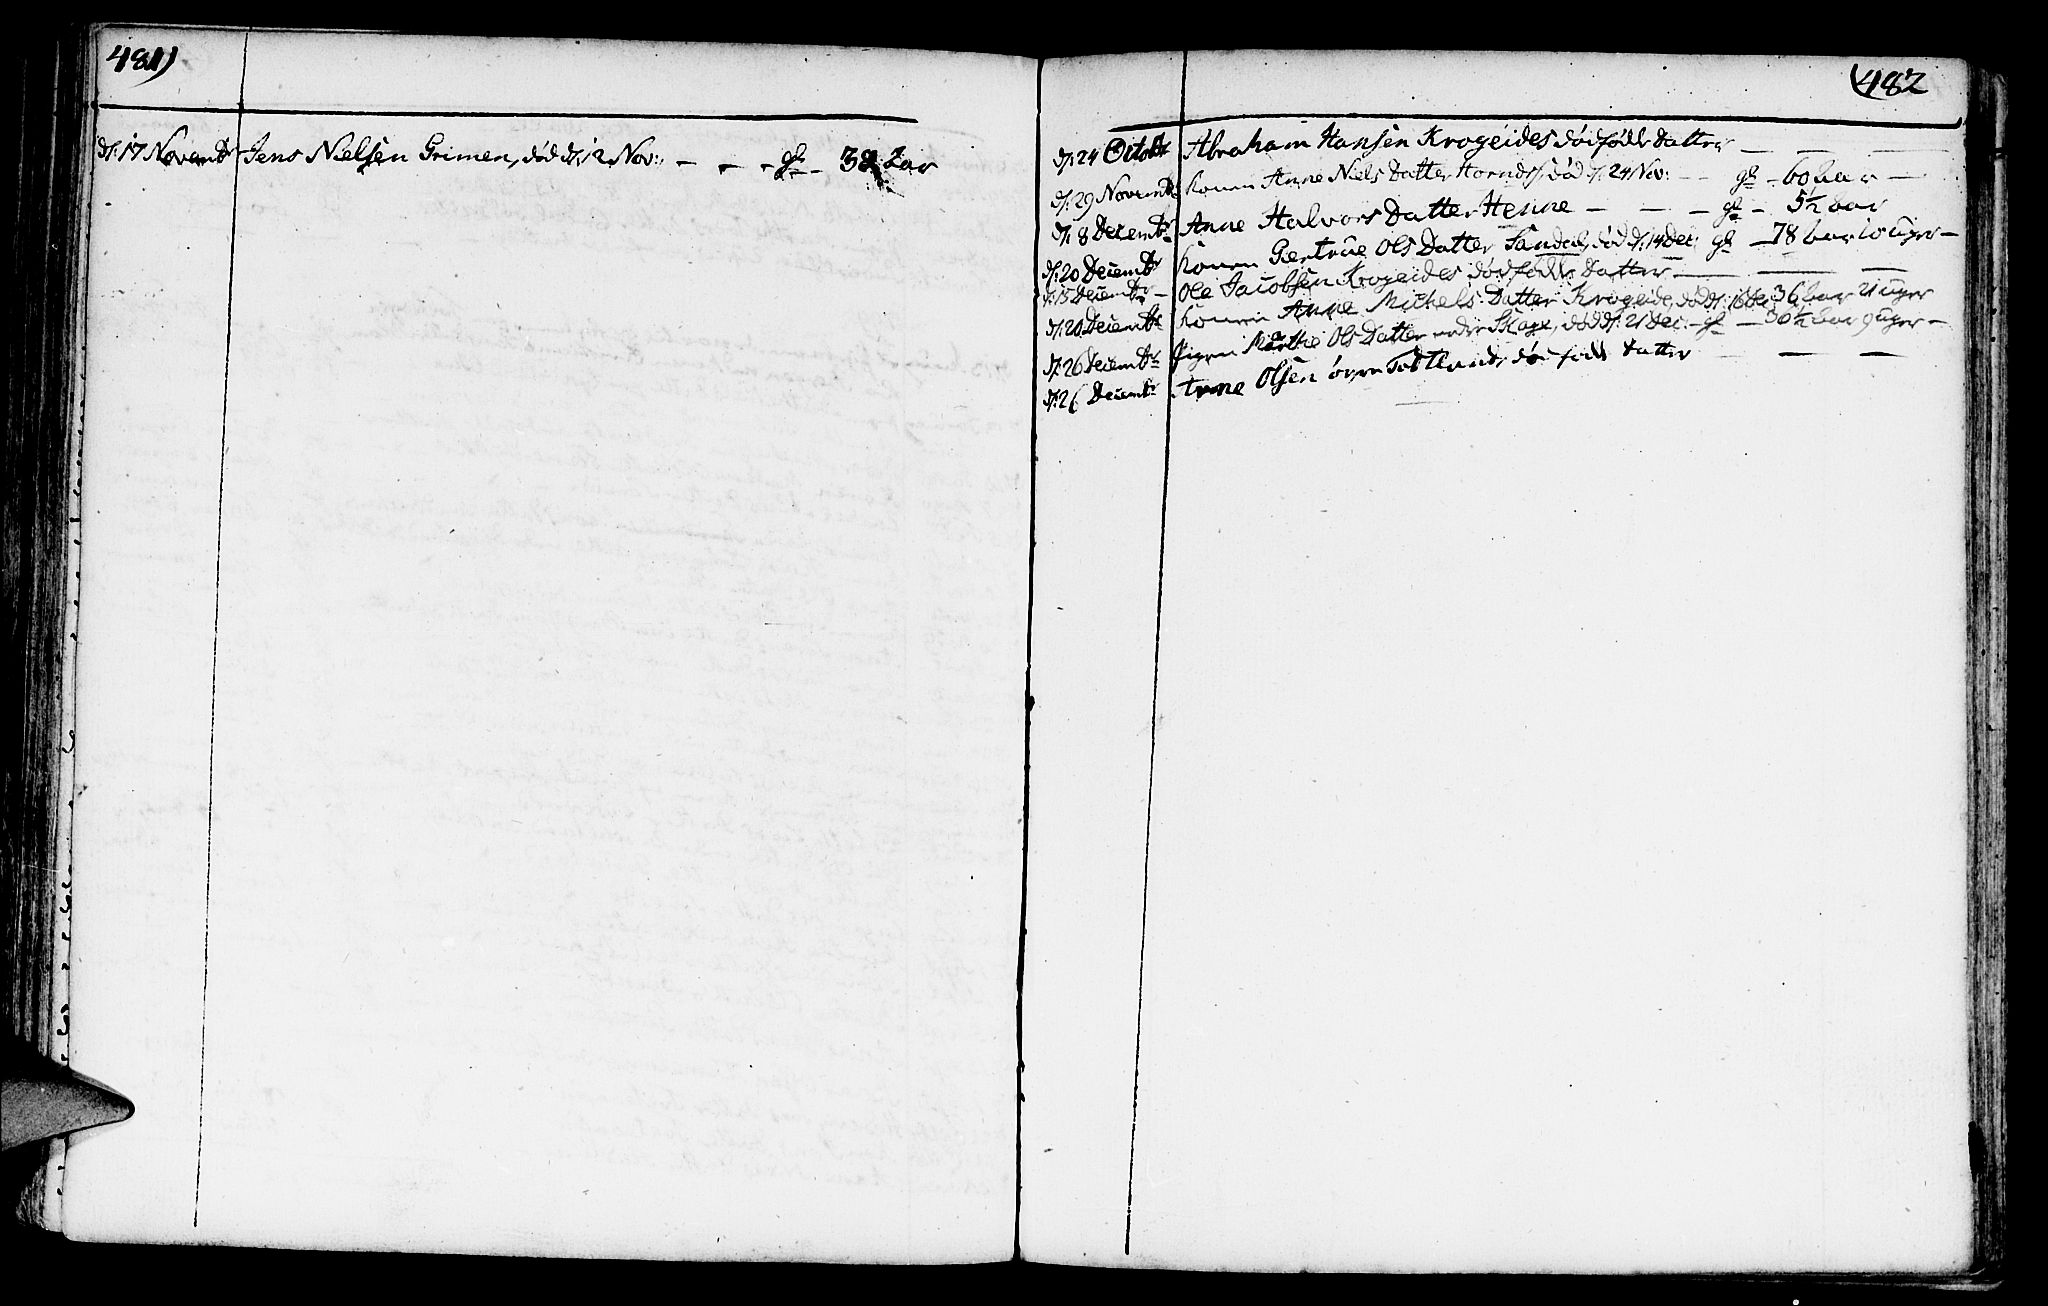 481)
d: 17 Novembr Jens Nielsen Grimen, død d: 12 Nov: - - - gl - 38 Aar
(482
d: 24 Octobr Abraham Hansen Krogeides dødfødde Datter
d: 29 Novembr Konen Anne Niels Datter død d: 24 Nov: - - gl - 60 aar -
d: 8 Decembr Anne Halvors Datter Henne - - - gl - 5½ aar
d: 20 Decembr Konen Giertrue Ols Datter Sandal, død d: 14 Dec: gl - 78 aar 10 uger -
d: 15 Decembr - Ole Jacobsen Krogeides dødfødde Datter
d: 20 Decembr Konen Anne Michels Datter Krogeide, død d: 16 Dec 36 aar 21 uger
d: 26 Decembr Pigen Marthe Ols Datter nedre Skage, død d: 21 Dec: - gl - 30½ aar 9 uger -
d: 26 Decembr Arne Olsen øvre død født Datter